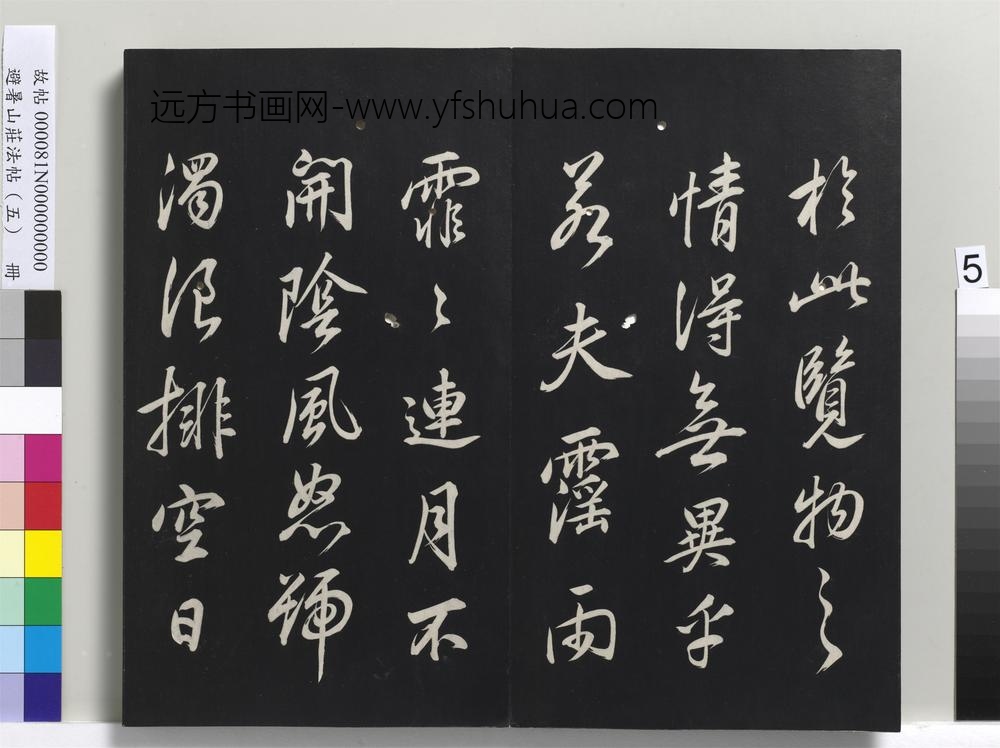 远方书画网-www.yfshuhua.com
於此覽物之
情得無異乎
若夫霪雨
霏〻連月不
開陰風怒號
濁浪排空日
故帖 000081N000000000
避暑山莊法帖（五） 冊
5